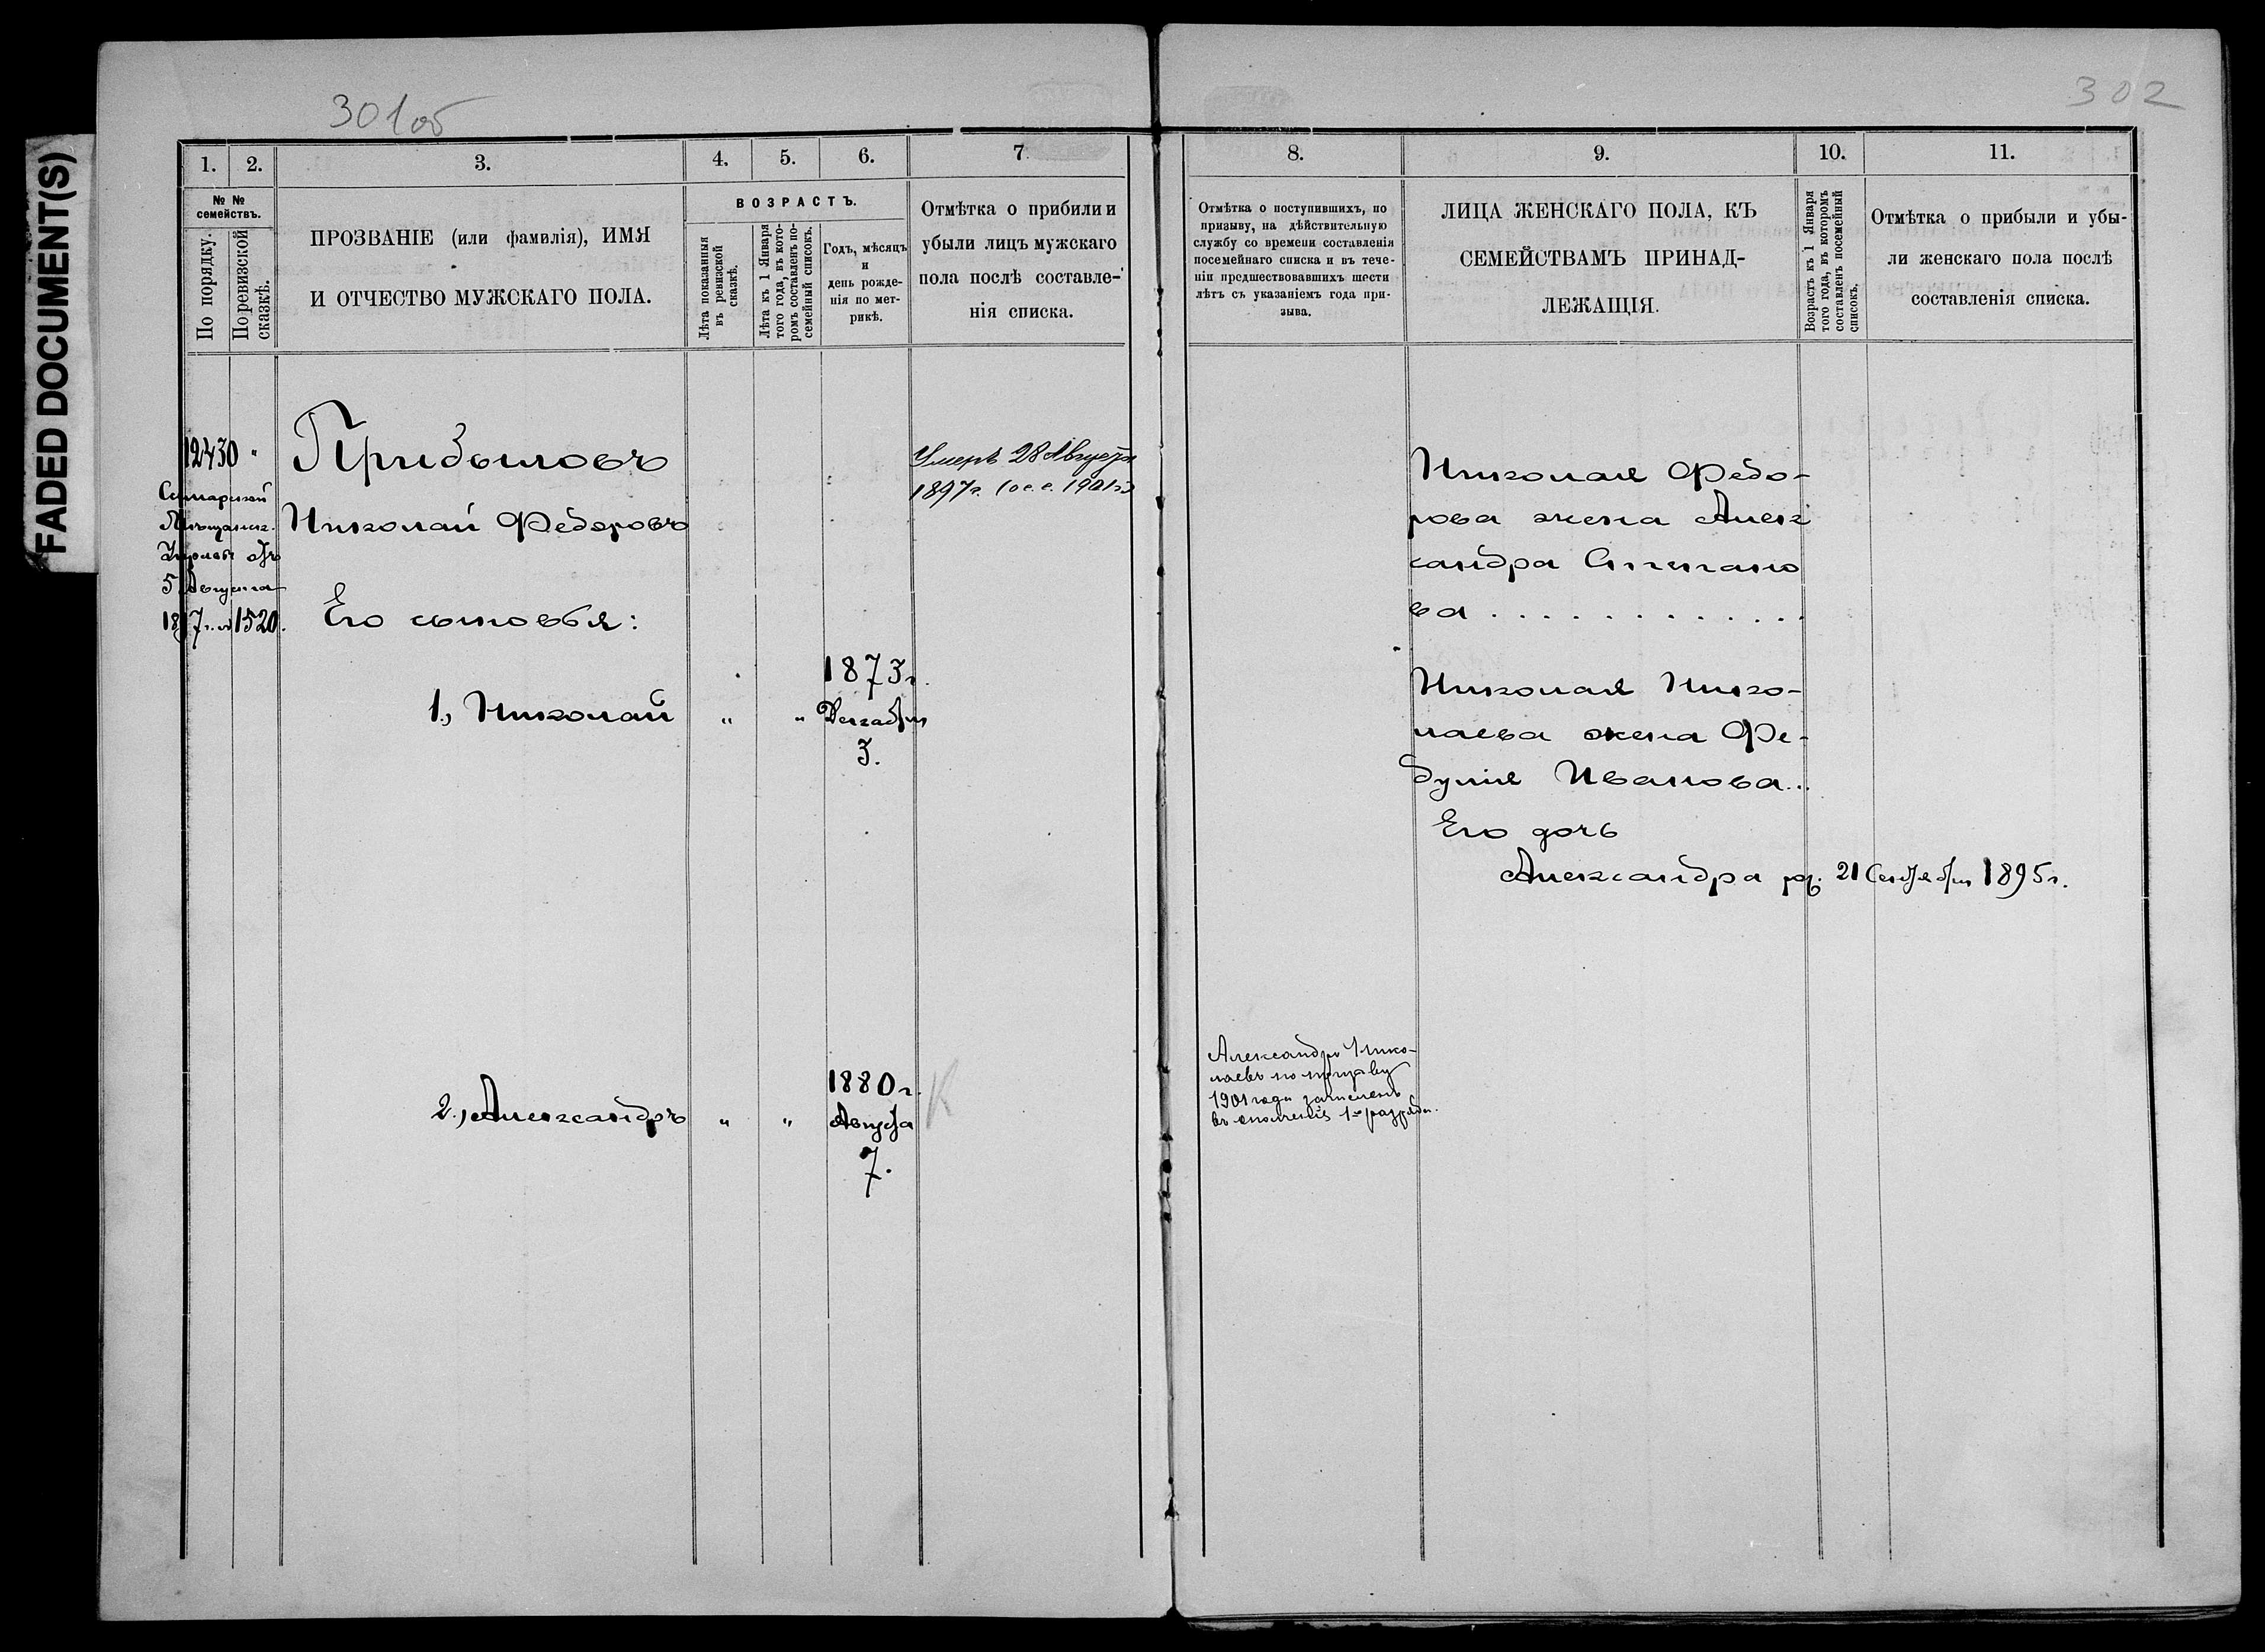 FADED DOCUMENT(S)
301об
302
1.
2.
3.
4.
5.
6.
7.
№ №
семействъ.
По порядку.
По ревизской
сказкѣ.
ПРОЗВАНІЕ (или фамилія), ИМЯ
И ОТЧЕСТВО МУЖСКАГО ПОЛА.
ВОЗРАСТЪ.
Лѣта показанныя
въ ревизской
сказкѣ.
Лѣта къ 1 Января
того года, въ кото-
ромъ составленъ по-
семейный списокъ.
Годъ, мѣсяцъ
и
день рожде-
нія по мет-
рикѣ.
Отмѣтка о прибыли и
убыли лицъ мужскаго
пола послѣ составле-
нія списка.
12430 "
Самарской
Мѣщанск.
Управы отъ
5 Августа
1897 г. № 1520.
Прибыловъ
Николай Федоровъ
Его сыновья:
1., Николай " "
1873 г.
Декабря
3.
2., Александръ " "
1880 г.
Августа
7.
К
Умеръ 28 Августа
1897 г. (о с. с. 1901 г.)
8.
9.
10.
11.
Отмѣтка о поступившихъ, по
призыву, на дѣйствительную
службу со времени составленія
посемейнаго списка и въ тече-
ніи предшествовавшихъ шести
лѣтъ съ указаніемъ года при-
зыва.
ЛИЦА ЖЕНСКАГО ПОЛА, КЪ
СЕМЕЙСТВАМЪ ПРИНАД-
ЛЕЖАЩІЯ.
Возрастъ къ 1 Января
того года, въ которомъ
составленъ посемейный
списокъ.
Отмѣтка о прибыли и убы-
ли женскаго пола послѣ
составленія списка.
Николая Федо-
рова жена Алек
сандра Степано
ва . . . . . . . . . . . .
Николая Нико-
лаева жена Фе-
дулія Иванова...
Его дочь
Александра род. 21 Сентября 1895 г.
Александръ Нико-
лаевъ по призыву
1901 года зачисленъ
въ ополченіе 1го разряда.